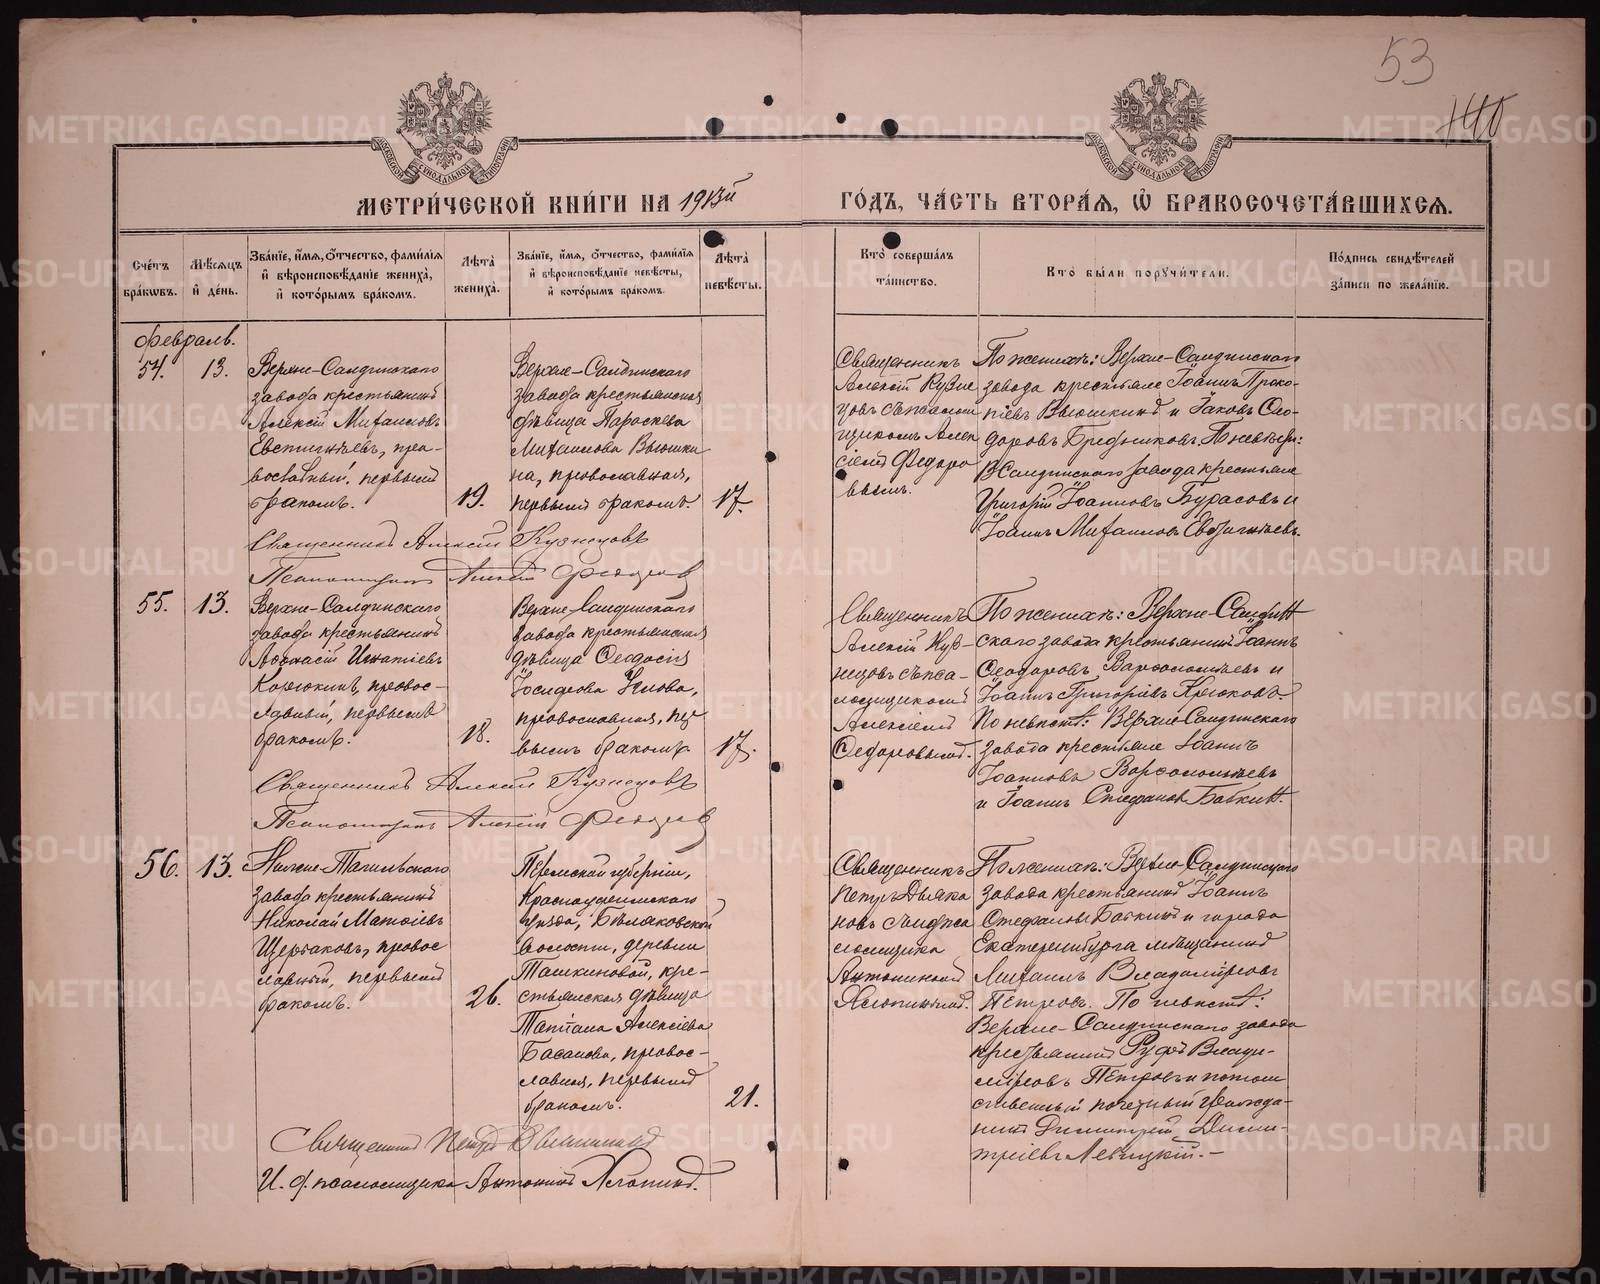 53
140
МЕТРИ́ЧЕСКОЙ КНИ́ГИ НА 1913й
ГО́ДЪ, ЧА́СТЬ ВТОРА́Я, Ѡ БРАКОСОЧЕТА́ВШИХСЯ.
Сче́тъ бра́кѡвъ.
Мѣ́сяцъ и́ де́нь.
Зва́нїе, и́мя, ѻ́тчество, фами́лїя и́ вѣроисповѣ́данїе жениха̀, и́ кото́рымъ бра́комъ.
Лѣ́та жениха̀.
Зва́нїе, и́мя, ѻ́тчество, фами́лїя и́ вѣроисповѣ́данїе невѣ́сты, и́ кото́рымъ бра́комъ.
Лѣ́та невѣ́сты.
Кто̀ соверша́лъ та́инство.
Кто̀ бы́ли поручи́тели.
По́дпись свидѣ́телей за́писи по жела́нїю.
Февраль.
54.
13.
Верхне-Салдинскаго
завода крестьянинъ
Алексій Михаиловъ
Евстигнѣевъ, пра-
вославный, первымъ
бракомъ.
19.
Верхне-Салдинскаго
завода крестьянская
дѣвица Параскева
Михаилова Вьюшки
на, православная,
первымъ бракомъ.
17.
Священникъ
Алексій Кузне
цовъ съ псаломщ
щикомъ Алек
сіемъ Федоро
вымъ.
По женихѣ: Верхне-Салдинскаго
завода крестьяне Іоаннъ Проко-
піевъ Вьюшкинъ и Іаковъ Ѳео-
доровъ Бредниковъ. По невѣстѣ:
В Салдинскаго завода крестьяне
Григорій Іоанновъ Бурасовъ и
Іоаннъ Михаиловъ Евстигнѣевъ.
Священникъ Алексій Кузнецовъ
Псаломщикъ Алексій Федоровъ
55.
13.
Верхне-Салдинскаго
завода крестьянинъ
Аѳанасій Игнатіевъ
православ-
лавный, первымъ
бракомъ.
18.
Верхне-Салдинскаго
завода крестьянская
дѣвица Ѳеодосія
Іосифова
православная, пер
вымъ бракомъ
17.
Священникъ
Алексій Куз-
нецовъ съ пса-
ломщикомъ
Алексіемъ
Ѳедоровымъ.
По женихѣ: Верхне-Салдин
скаго завода крестьянинъ Іоаннъ
Ѳеодоровъ Варѳоломѣевъ и
Іоаннъ Григоріевъ Крюковъ.
По невѣстѣ: Верхне-Салдинскаго
завода крестьяне Іоаннъ
Іоанновъ Варѳоломѣевъ
и Іоаннъ Стефановъ Бабкинъ.
Священникъ Алексій Кузнецовъ
Псаломщикъ Алексій Федоровъ
56.
13.
Нижне-Тагильскаго
завода крестьянинъ
Николай Матѳіевъ
Щербаковъ, правос
лавный, первымъ
бракомъ.
26.
Пермской губерніи,
Красноуфимскаго
уѣзда,
волости, деревни
Ташкиновой, кре-
стьянская дѣвица
Татіана Алексіева
Басанова, правос-
лавная, первымъ
бракомъ.
21.
Священникъ
Петръ Дьяко
новъ
ломщика
Антониномъ
Хлопинымъ.
По женихѣ: Верхне-Салдинскаго
завода крестьянинъ Іоаннъ
Стефановъ Бабкинъ и города
Екатеринбурга мѣщанинъ
Михаилъ Владиміровъ
Петровъ. По невѣстѣ:
Верхне-Салдинскаго завода
крестьянинъ Руфъ Влади-
міровъ Петровъ и потом
ственный почетный гражда-
нинъ Димитрій Дими-
тріевъ Левицкій.-
Священникъ Петръ
И. д. псаломщика Антонинъ Хлопинъ.
METRIKI.GASO-URAL.RU